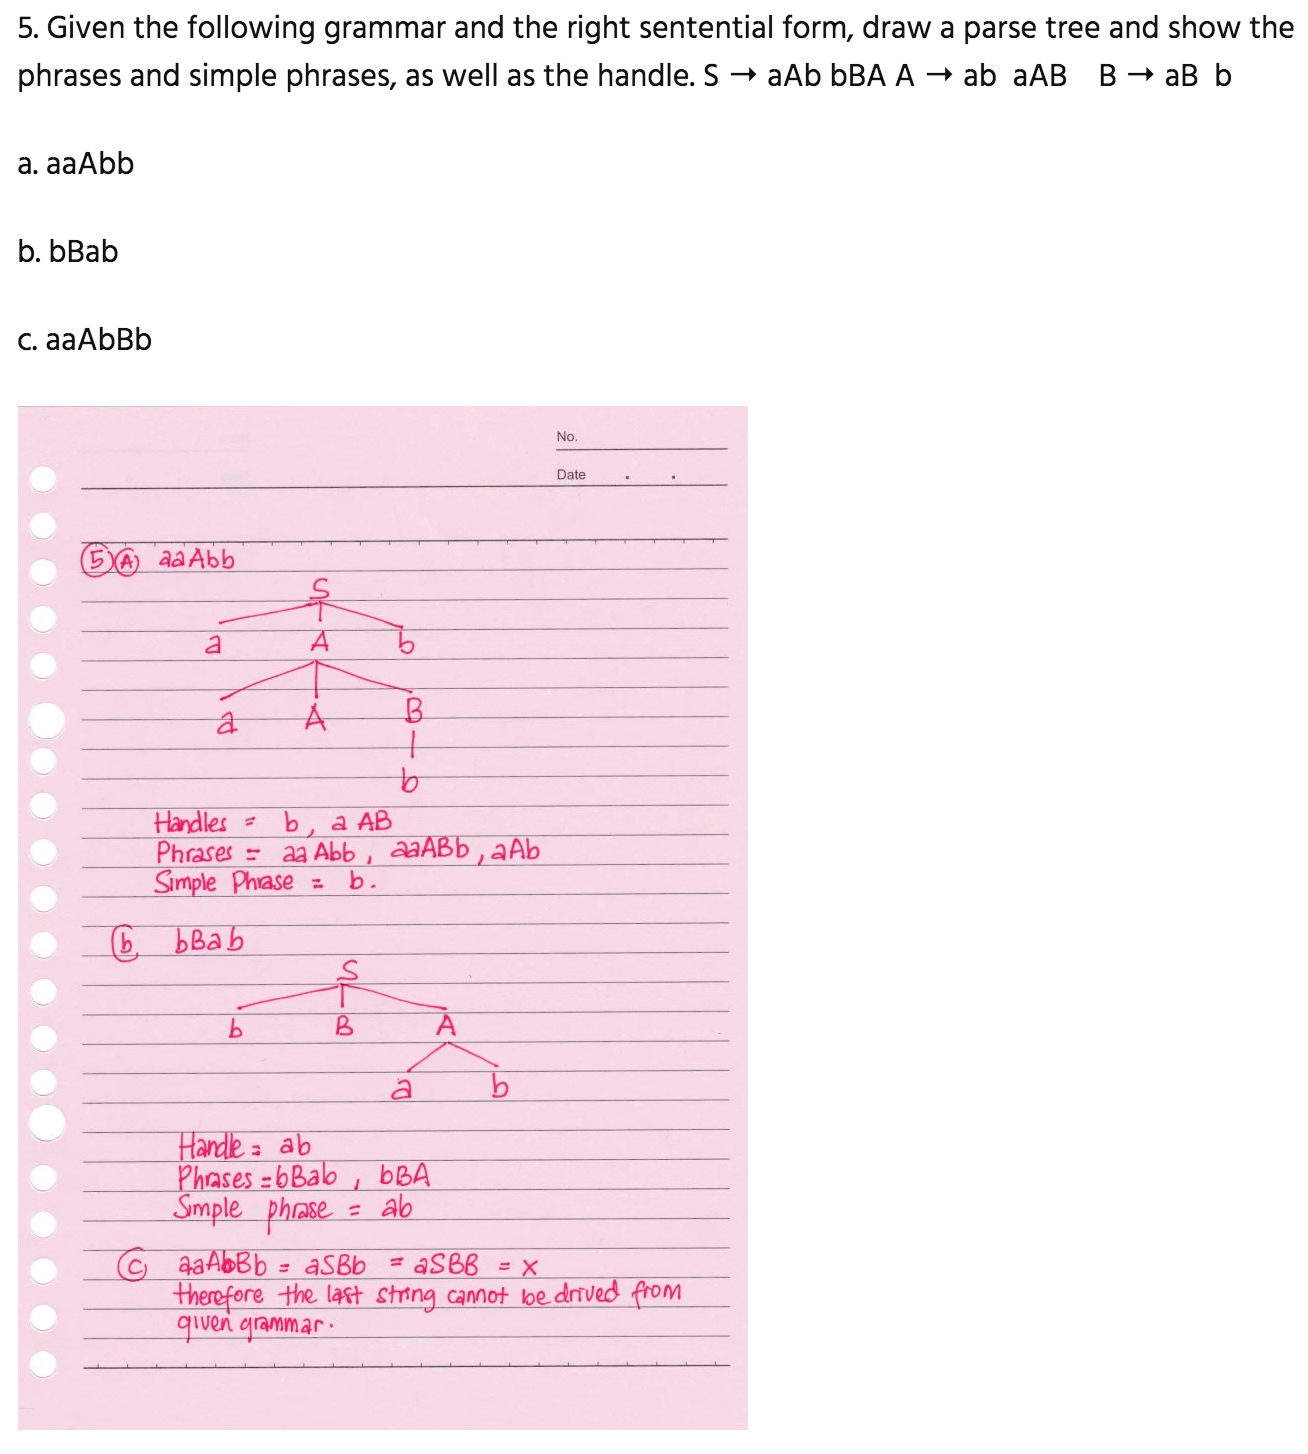 5. Given the following grammar and the right sentential form, draw a parse tree and show the
phrases and simple phrases, as well as the handle. S → aAb bBA A → ab aAB B → aB b
a. aaAbb
b. bBab
c. aaAbBb
No.
Date . .
5 A) aaAbb
S
a A b
a A B
b
Handles = b, a AB
Phrases = aa Abb, aaABb, aAb
Simple Phrase = b.
b bBab
S
b B A
a b
Handle = ab
Phrases = bBab, bBA
Simple phrase = ab
C aaAbBb = aSBb = aSBB = x
therefore the last string cannot be drived from
given grammar.